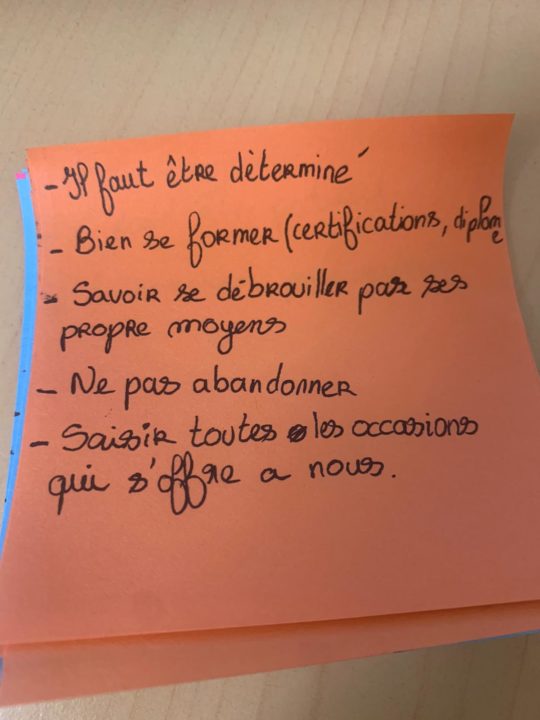 - Il faut être déterminé
- Bien se former (certifications, diplome
- Savoir se débrouiller par ses
propre moyens
- Ne pas abandonner
- Saisir toutes les occasions
qui s'offre a nous.